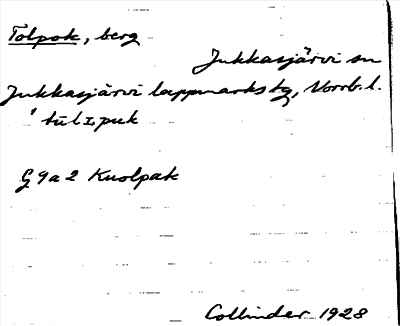 Tolpok, berg
Jukkasjärvi sn
Jukkasjärvi lappmarks tg, Norrb. l.
G 9 a 2 Kuolpak
Collinder 1928